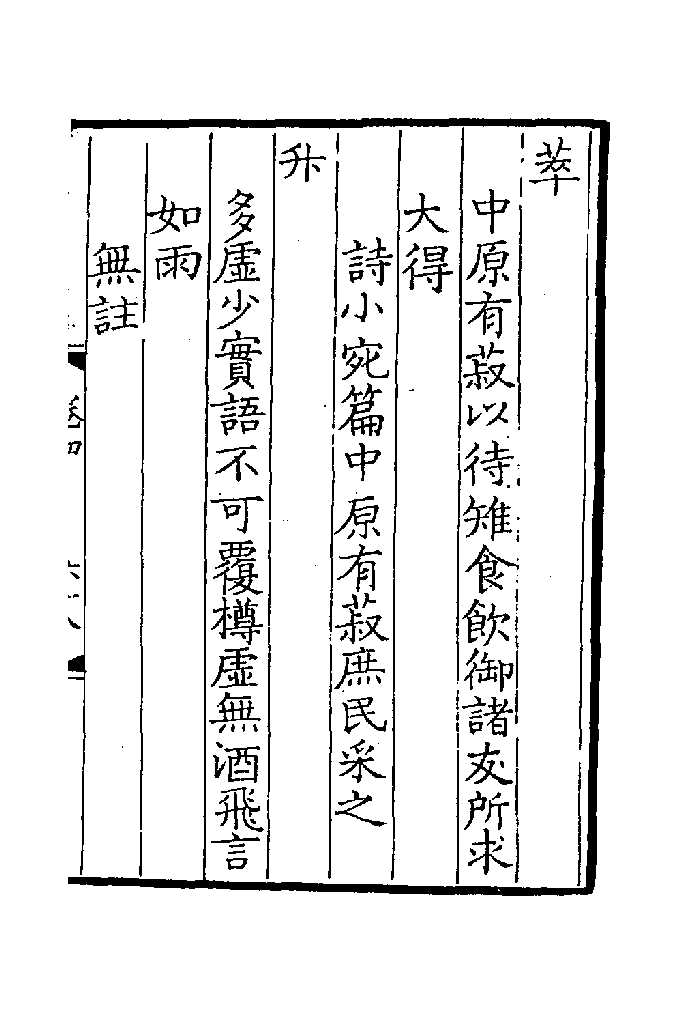 萃
中原有菽以待雉食飲御諸友所求
大得
詩小宛篇中原有菽庶民采之
升
多虛少實語不可覆樽虛無酒飛言
如雨
無註